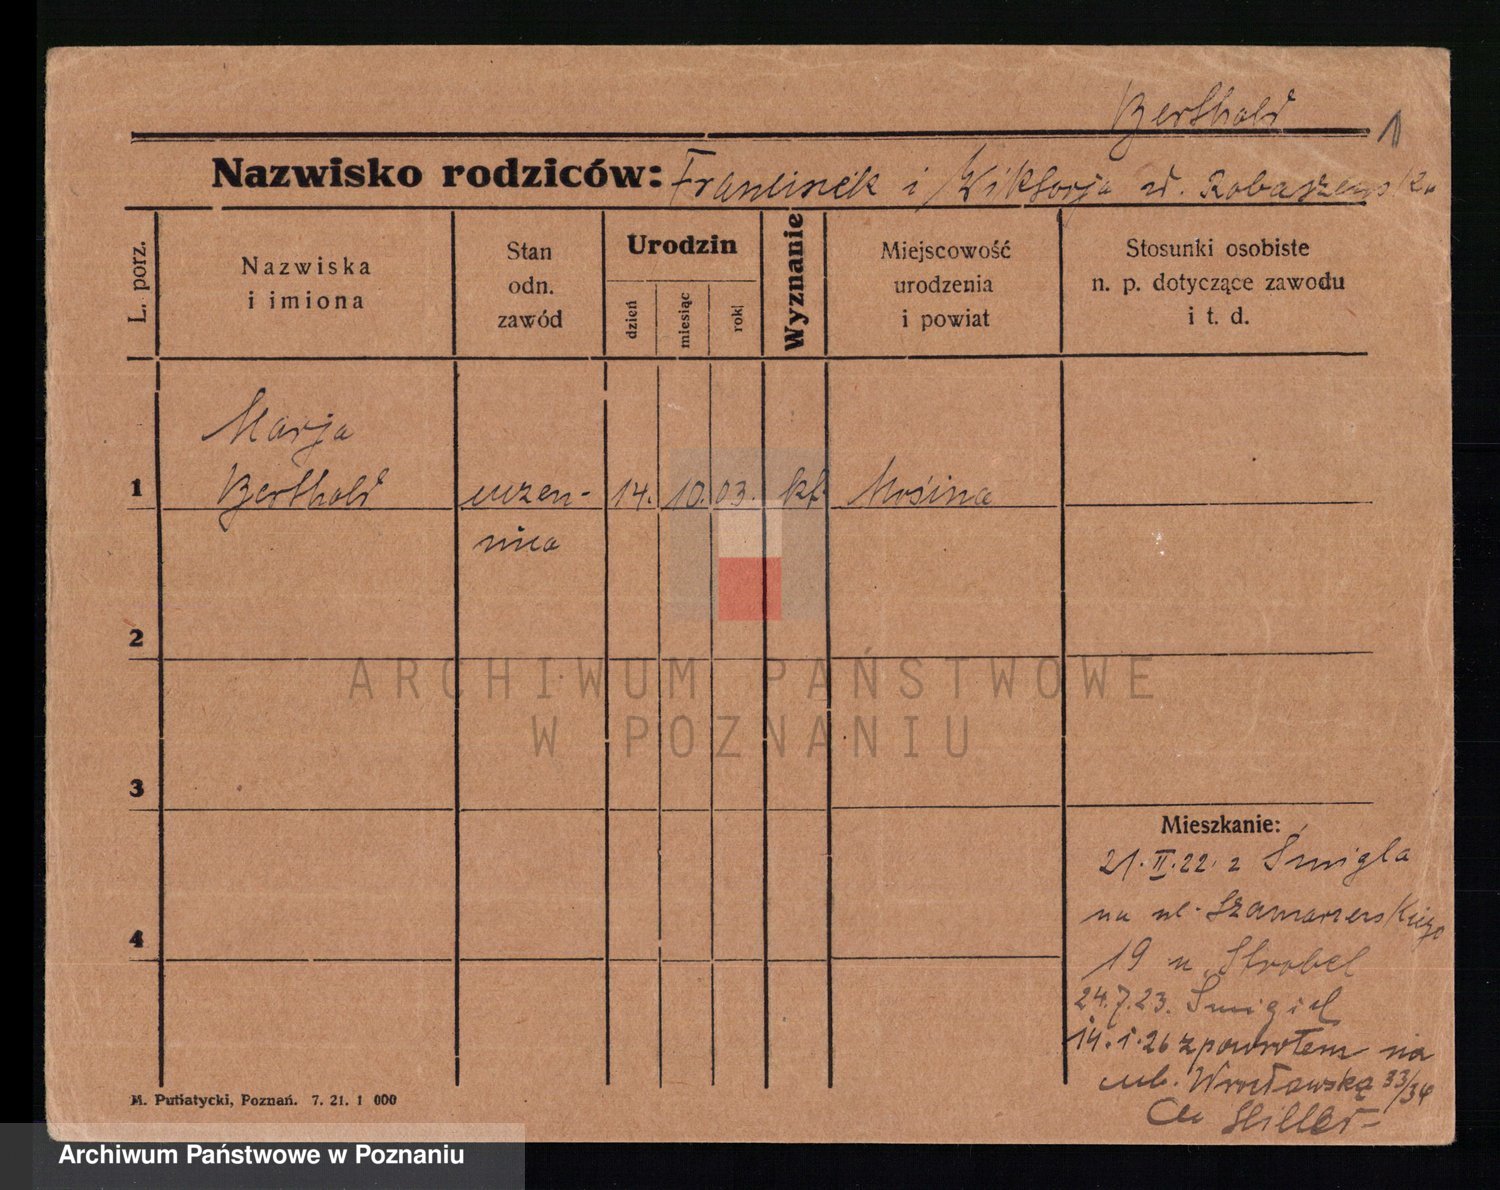 Berthold
1
Nazwisko rodziców: Franciszek i Wiktorja
L. porz.
Nazwiska
i imiona
Stan
odn.
zawód
Urodzin
dzień
miesiąc
rok
Wyznanie
Miejscowość
urodzenia
i powiat
Stosunki osobiste
n. p. dotyczące zawodu
i t. d.
Marja
1 Berthold uczen- 14. 10. 03. kt. Mosina
nica
2
ARCHIWUM PAŃSTWOWE
W POZNANIU
3
Mieszkanie:
21. II. 22. z Śmigla
na ul. Szamarzewskiego
4
19 u Strobel
24.7.23. Śmigiel
14.1.26 z powrotem na
ul. Wrocławską 33/34
Hiller
M. Putiatycki, Poznań. 7. 21. 1 000
Archiwum Państwowe w Poznaniu